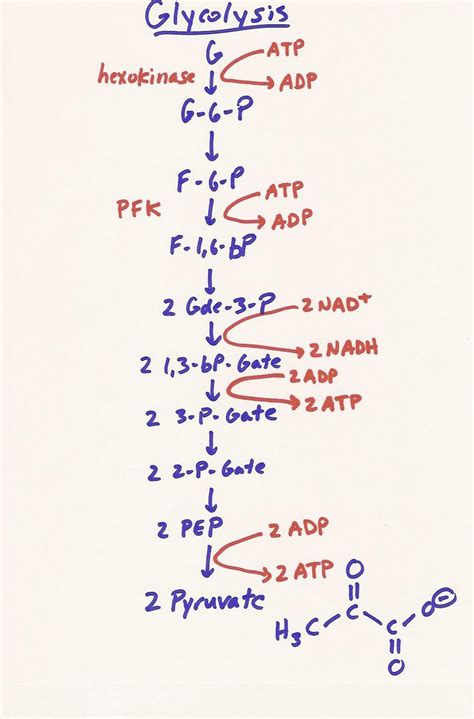 Glycolysis
G
ATP
hexokinase
ADP
G-6-P
F-6-P
ATP
PFK
ADP
F-1,6-bP
2 Gde-3-P
2 NAD+
2 NADH
2 1,3-bP-Gate
2 ADP
2 ATP
2 3-P-Gate
2 2-P-Gate
2 PEP
2 ADP
2 ATP
2 Pyruvate
O
H3C C C O⊖
O